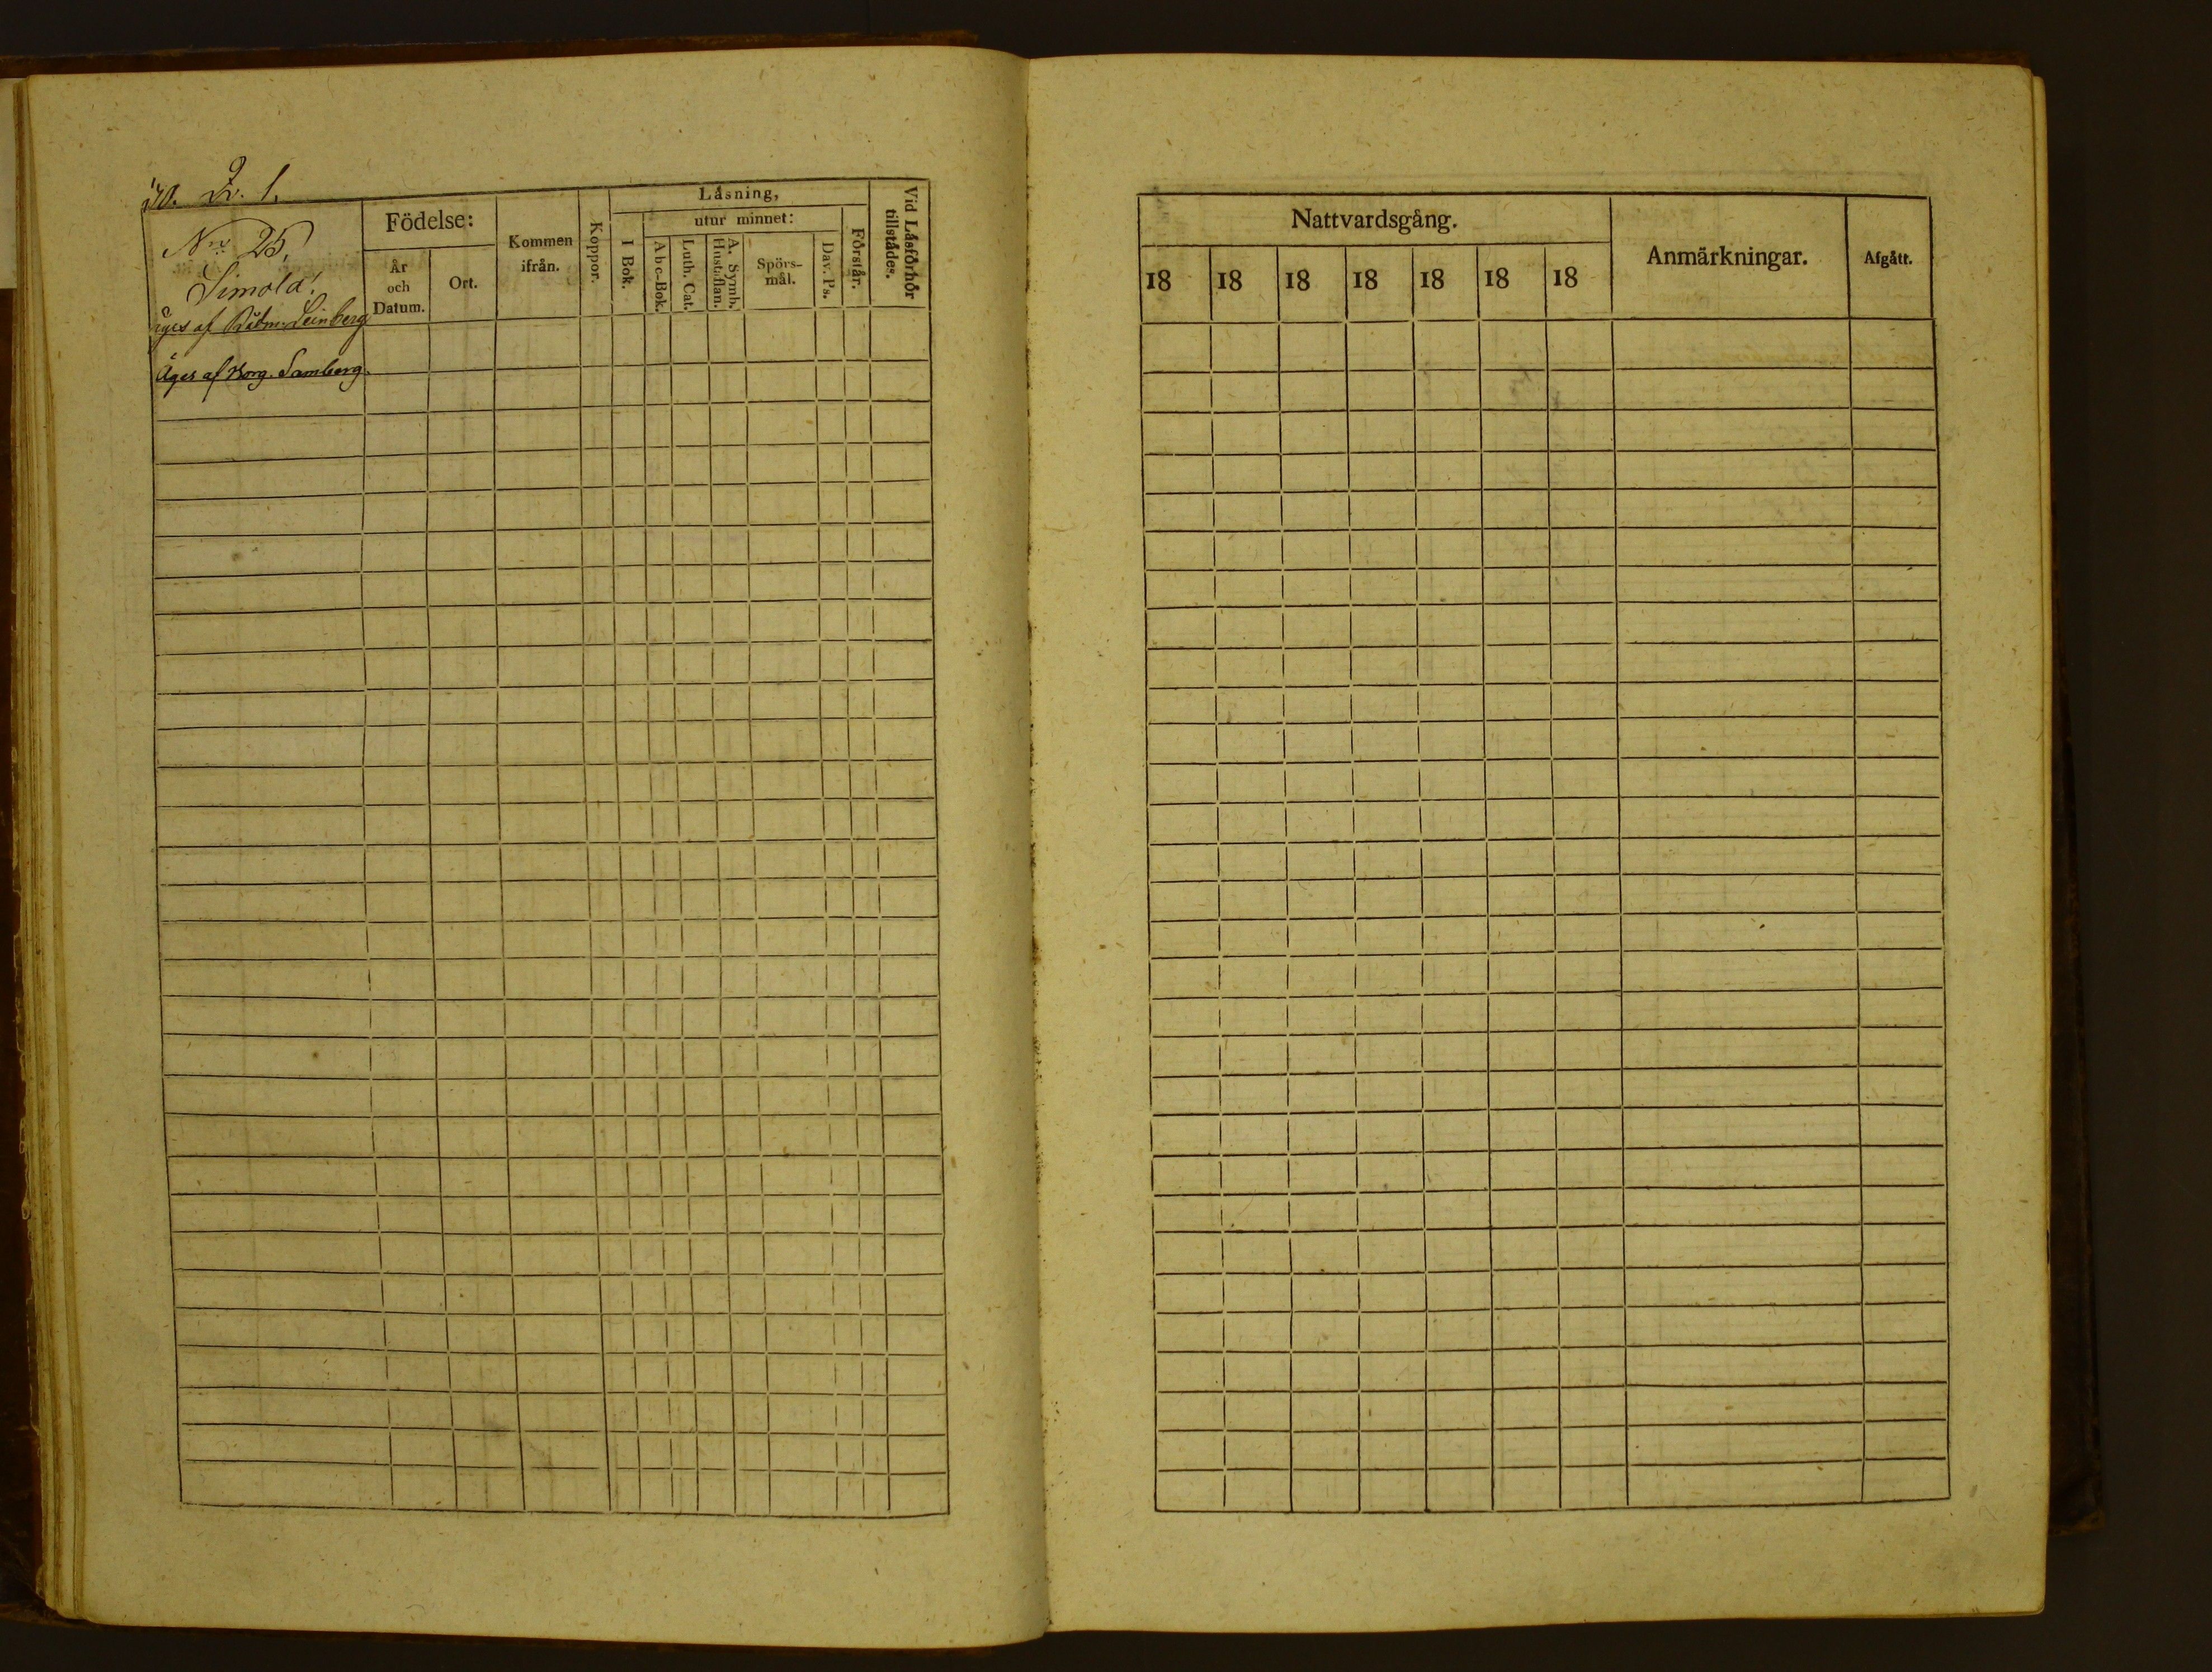 Qv. 1.
N:o 25.
Simola.
Äges af Rådm. Leinberg
Äges af Borg. Lamberg.
Födelse:
År och Datum.
Ort.
Kommen ifrån.
Koppor.
Låsning,
I Bok.
utur minnet:
Abc-Bok.
Luth. Cat.
A. Symb. Hustaflan.
Spörs-
mål.
Dav. Ps.
Förstår.
Vid Låsförhör tillstådes.
Nattvardsgång.
18 18 18 18 18 18 18
Anmärkningar.
Afgått.